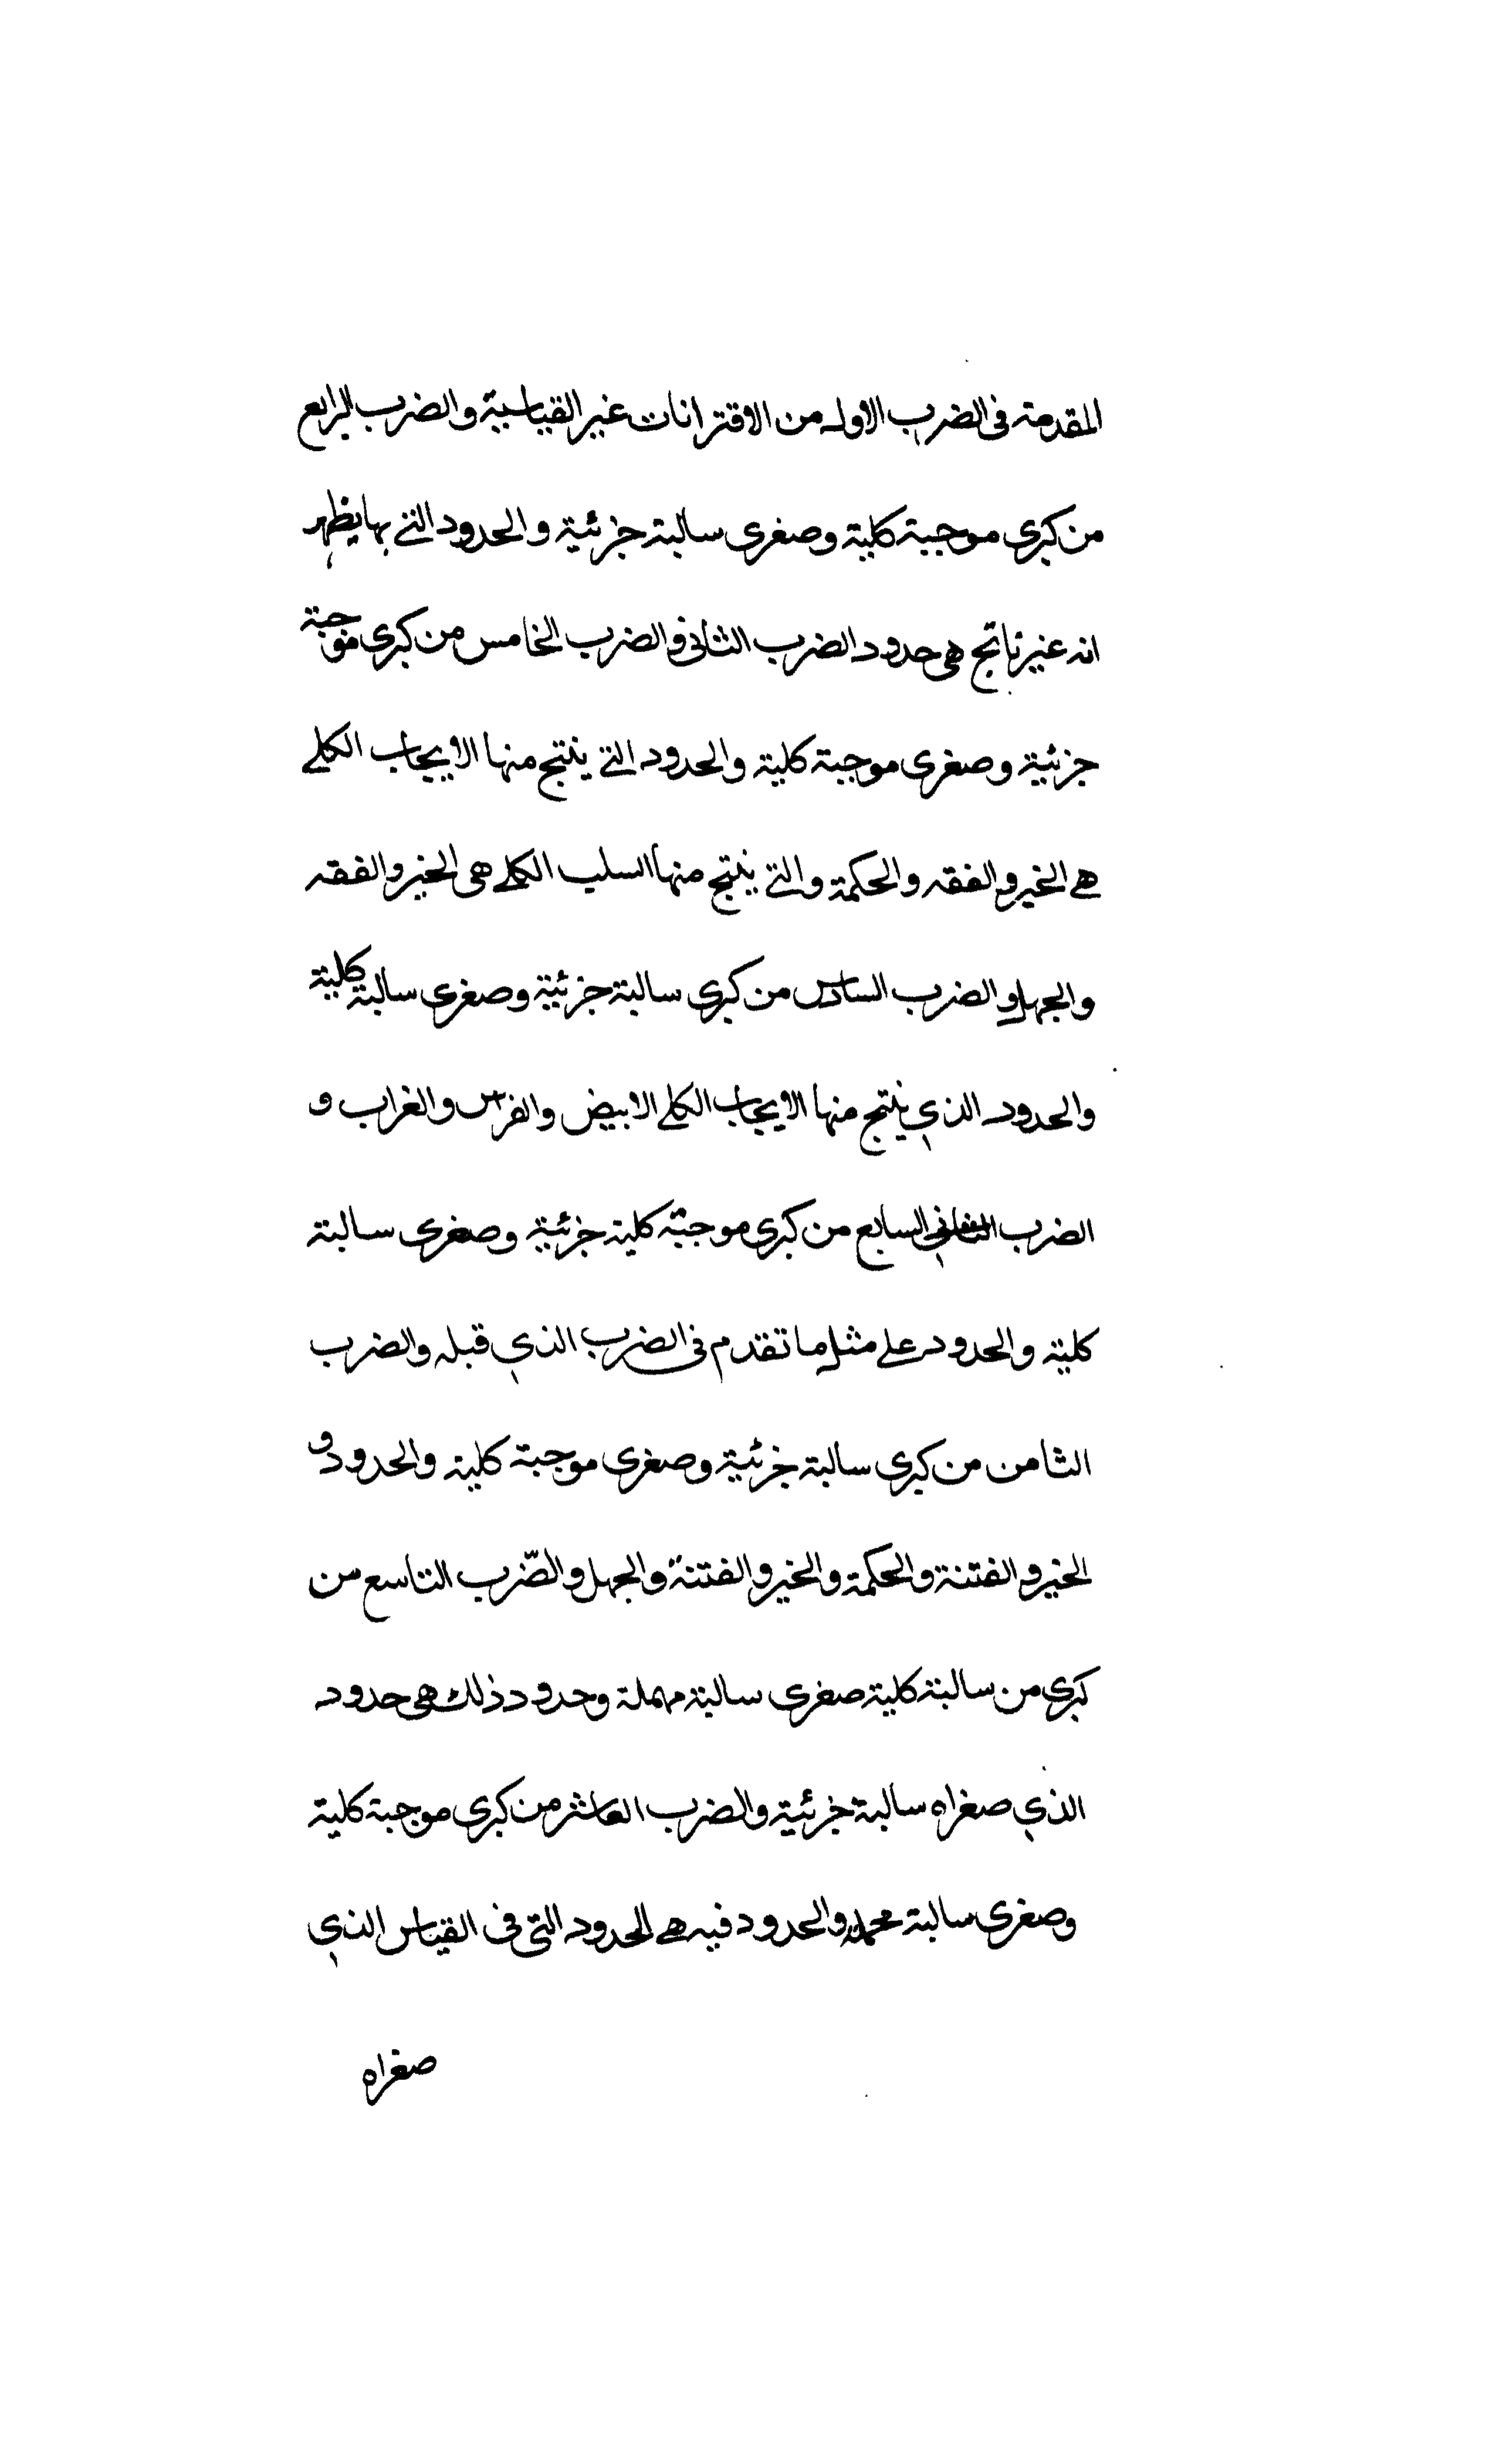 المقدمة فى الضرب الاول من الاقترانات غير القياسية والضرب الرابع
من كبرى موجبة كلية وصغرى سالبة جزئية والحدود التى بها يظهر
انه غير ناتج هى حدود الضرب الثانى والضرب الخامس من كبرى موجبة
جزئية وصغرى موجبة كلية والحدود التى ينتج منها الايجاب الكلى
هى الخير والفقه والحكمة والتى ينتج منها السلب الكلى هى الخير والفقه
والجهل والضرب السادس من كبرى سالبة جزئية وصغرى سالبة كلية
والحدود الذي ينتج منها الايجاب الكلى الابيض والفرس والغراب و
الضرب السابع من كبرى موجبة كلية جزئية وصغرى سالبة
كلية والحدود على مثل ما تقدم فى الضرب الذي قبله والضرب
الثامن من كبرى سالبة جزئية وصغرى موجبة كلية والحدود و
الخير والفتنة والحكمة والخير والفتنة والجهل والضّرب التاسع من
كبرى من سالبة كلية صغرى سالبة مهملة وحدود ذلك هى حدود
الذي صغراه سالبة جزئية والضرب العاشر من كبرى موجبة كلية
وصغرى سالبة مهملة والحدود فيه هى الحدود التى فى القياس الذي
صغراه